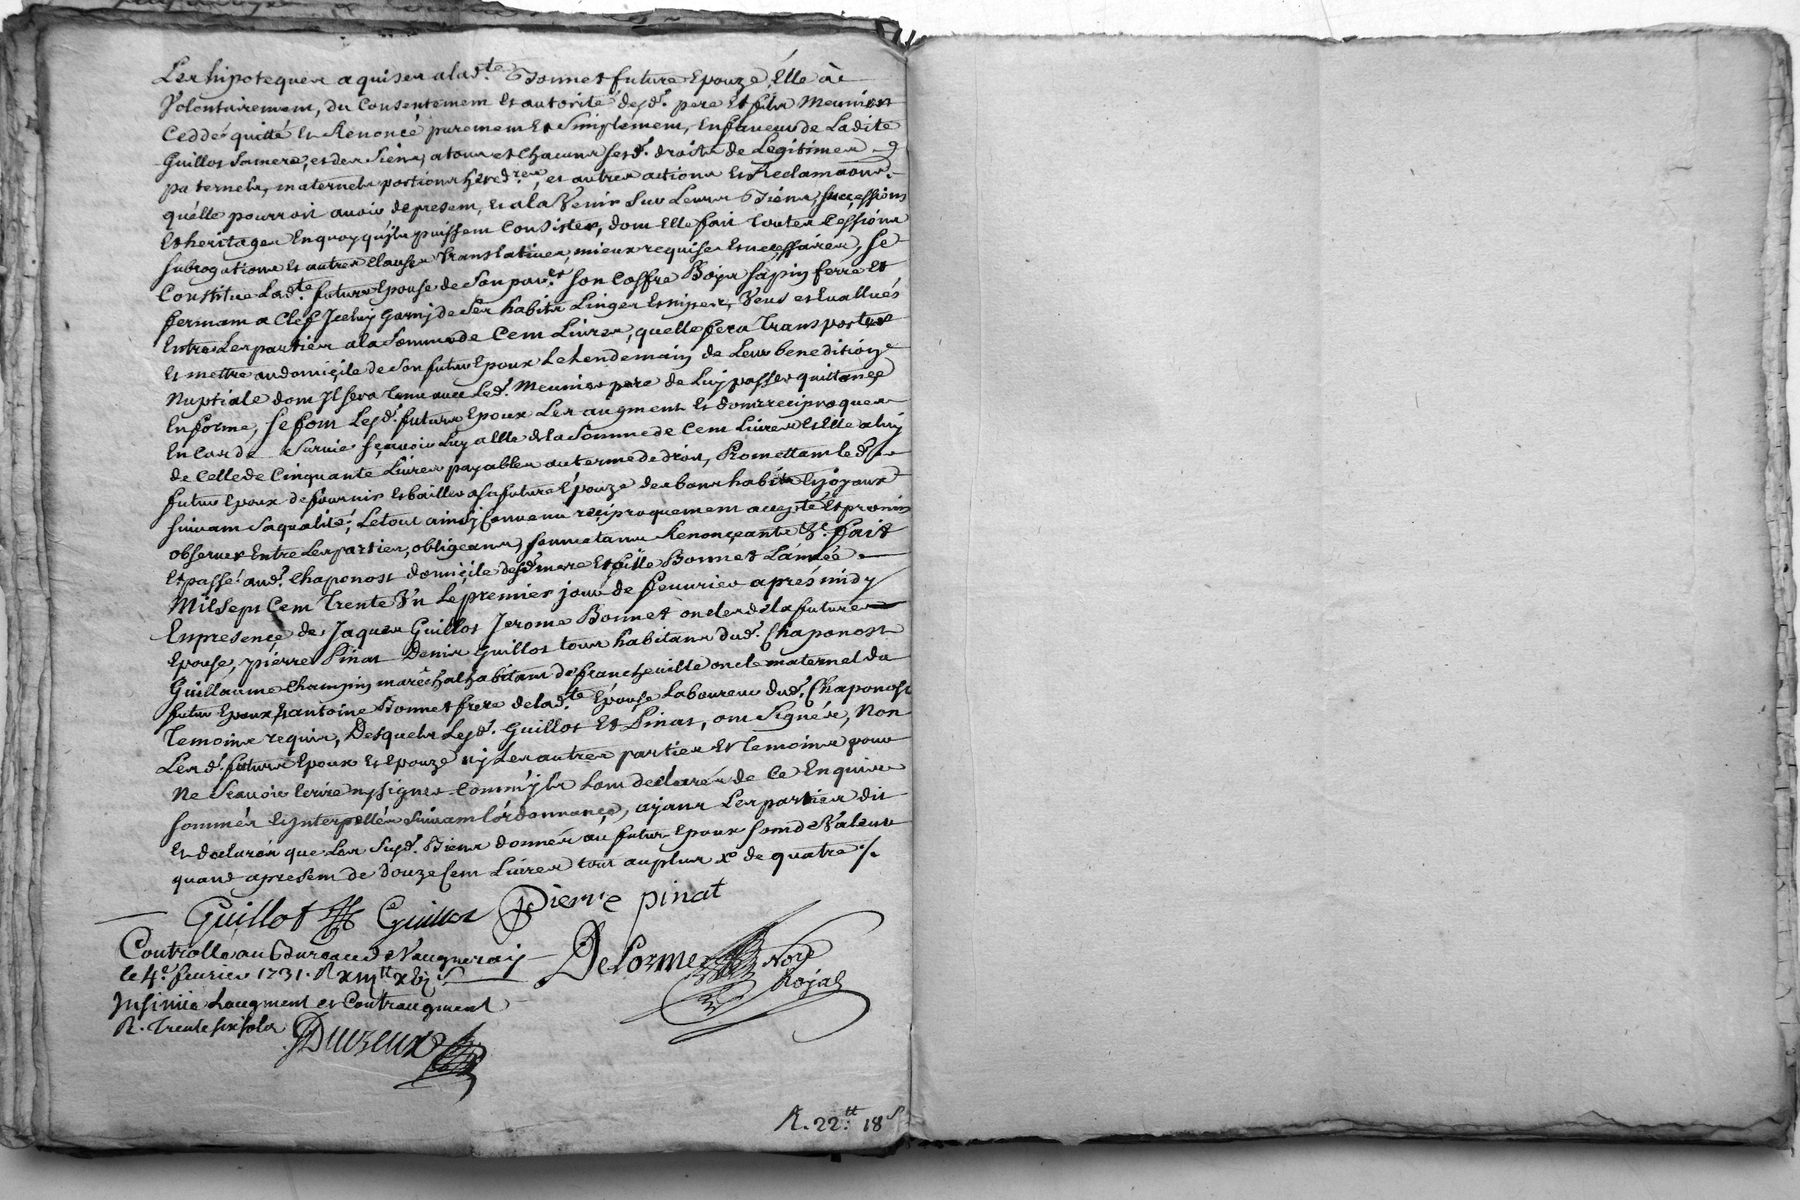 Les hipoteques aquises alad.te Bonnet future Epouze, Elle à
Volontairement, du Consentement et autorité desd. pere et fils Meunier
Ceddé quitté et Renoncé purement et Simplement, En faveur de Ladite
Guillot Samere, et des Siens, atous et Chacuns sesd. droits de Legitimes
paternels, maternels portions hered.res, et autres actions et Reclamaons.
quelle pourroit avoir de present, et ala Venir Sur Leurs Biens, successions
Et heritages Enquoy quils puissent Consister, dont Elle fait toutes Cessions
Subrogations et autres Clauses translatives, mieux requises et necessaires, se
Constitue Lad.te future Epouse de Son pau.et son Coffre Boys sapin ferré et
fermant a Clef Jceluy Garny de Ses habits Linges et nipes, Veus et Evallués
Entre Les parties ala Somme de Cent Livres, quelle fera transporter
Et mettre au domicile de Son futur Epoux Le Lendemain de Leur benedition
Nuptiale dont Jl sera tenu avec Led. Meunier pere de Luy passer quittance
En forme, se font Lesd. futurs Epoux Les augment et dons reciproques
En Cas de Survie sçavoir Luy a Elle de la Somme de Cent Livres et Elle a luy
de Celle de Cinquante Livres payables au terme de droit, Promettant led.
futur Epoux de fournir et bailler asa future Epouze des bons habits et joyaux
suivant Saqualité, Le tout ainsy Convenu reciproquement accepté et promis
observer Entre Les parties, obligeans, soumetans Renonçeants &c. fait
Et passé aud. Chaponost domicile desd. mere et fille Bonnet L'année
Mil Sept Cent Trente Un Le premier jour de fevrier aprés midy
En presence de Jaques Guillot Jerome Bonnet oncles de la future
Epouse, pierre Pinat Denis Guillot tous habitans dud. Chaponost
Guillaume Champin maréchal habitant de francheville oncle maternel du
futur Epoux, Et antoine Bonnet frere de lad.te Epouse Laboureur dud. Chaponost
temoins requis, Desquels Lesd. Guillot et Pinat, ont Signés, Non
Les d. futurs Epoux et Epouze ny Les autres parties et temoins pour
Ne Sçavoir Ecrire ny signer Comm'jls L'ont declarés de Ce Enquis
sommés et Jnterpellés Suivant l'ordonnance, ayans Les parties dit
Et declaré que Les Susd. Biens donnés au futur Epoux sont de Valeur
quand apresent de Douze Cent Livres tout au plus X. de quatre /.
Guillot Guillot Pierre pinat
Controllé au Bureau de Vaugneray
le 4.e fevrier 1731. R xiiij tt xvj s
Delorme Not.e
Royal
Jnsinüé Laugment et Contraugment
R. Trente six sols
Dureux
R. 22.tt 18 s